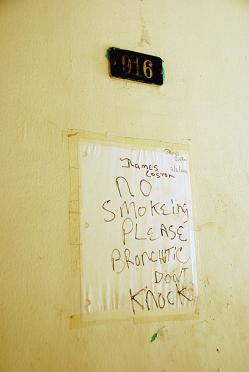 916
James
Coston
NO
SMOKEING
PLEASE
BRONCHTIC
DONT
KNOCK